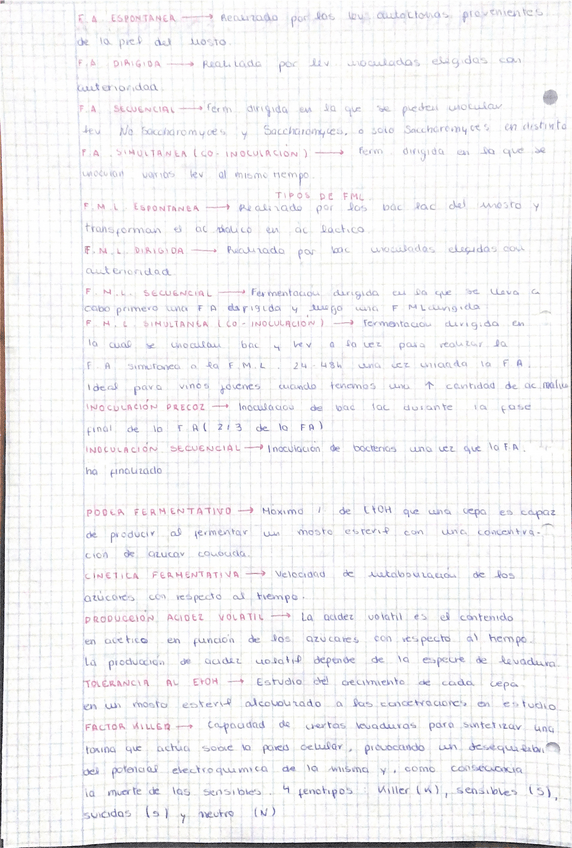 F.A ESPONTANEA → Realizado por las lev autoctonas provenientes
de la piel del mosto.
F.A DIRIGIDA → Realizada por lev inoculadas elegidas con
anterioridad.
F.A SECUENCIAL → Ferm. dirigida en la que se pueden inocular
lev No Saccharomyces y Saccharomyces, o solo Saccharomyces en distinto
F.A. SIMULTANEA (CO-INOCULACIÓN) → Ferm dirigida en la que se
inoculan varias lev al mismo tiempo.
TIPOS DE FML
F.M.L ESPONTANEA → Realizado por las bac lac del mosto y
transforman el ac malico en ac lactico.
F.M.L. DIRIGIDA → Realizado por bac inoculadas elegidas con
anterioridad
F.M.L. SECUENCIAL → Fermentacion dirigida en la que se lleva a
cabo primero una F A dirigida y luego una F ML dirigida
F.M.L SIMULTANEA (CO-INOCULACIÓN) → Fermentacion dirigida en
la cual se inoculan bac y lev a la vez para realizar la
F.A simultanea a la F.M.L. 24-48h una vez iniciada la F.A.
Ideal para vinos jovenes cuando tenemos una ↑ cantidad de ac. malico
INOCULACIÓN PRECOZ → Inoculacion de bac lac durante la fase
final de la F.A (2/3 de la FA)
INOCULACIÓN SECUENCIAL → Inoculación de bacterias una vez que la F.A.
ha finalizado.
PODER FERMENTATIVO → Máximo % de EtOH que una cepa es capaz
de producir al fermentar un mosto esteril con una concentra-
cion de azucar conocida.
CINETICA FERMENTATIVA → Velocidad de metabolización de los
azúcares con respecto al tiempo.
PRODUCCIÓN ACIDEZ VOLATIL → La acidez volatil es el contenido
en acetico en función de los azucares con respecto al tiempo.
La producción de acidez volatil depende de la especie de levadura.
TOLERANCIA AL EtOH → Estudio del crecimiento de cada cepa
en un mosto esteril alcoholizado a las concetraciones en estudio.
FACTOR KILLER → Capacidad de ciertas levaduras para sintetizar una
toxina que actúa sobre la pared celular, provocando un desequilibri
del potencial electroquimico de la misma y, como consecuencia
la muerte de las sensibles. 4 fenotipos: Killer (K), sensibles (S),
suicidas (S) y neutro (N)